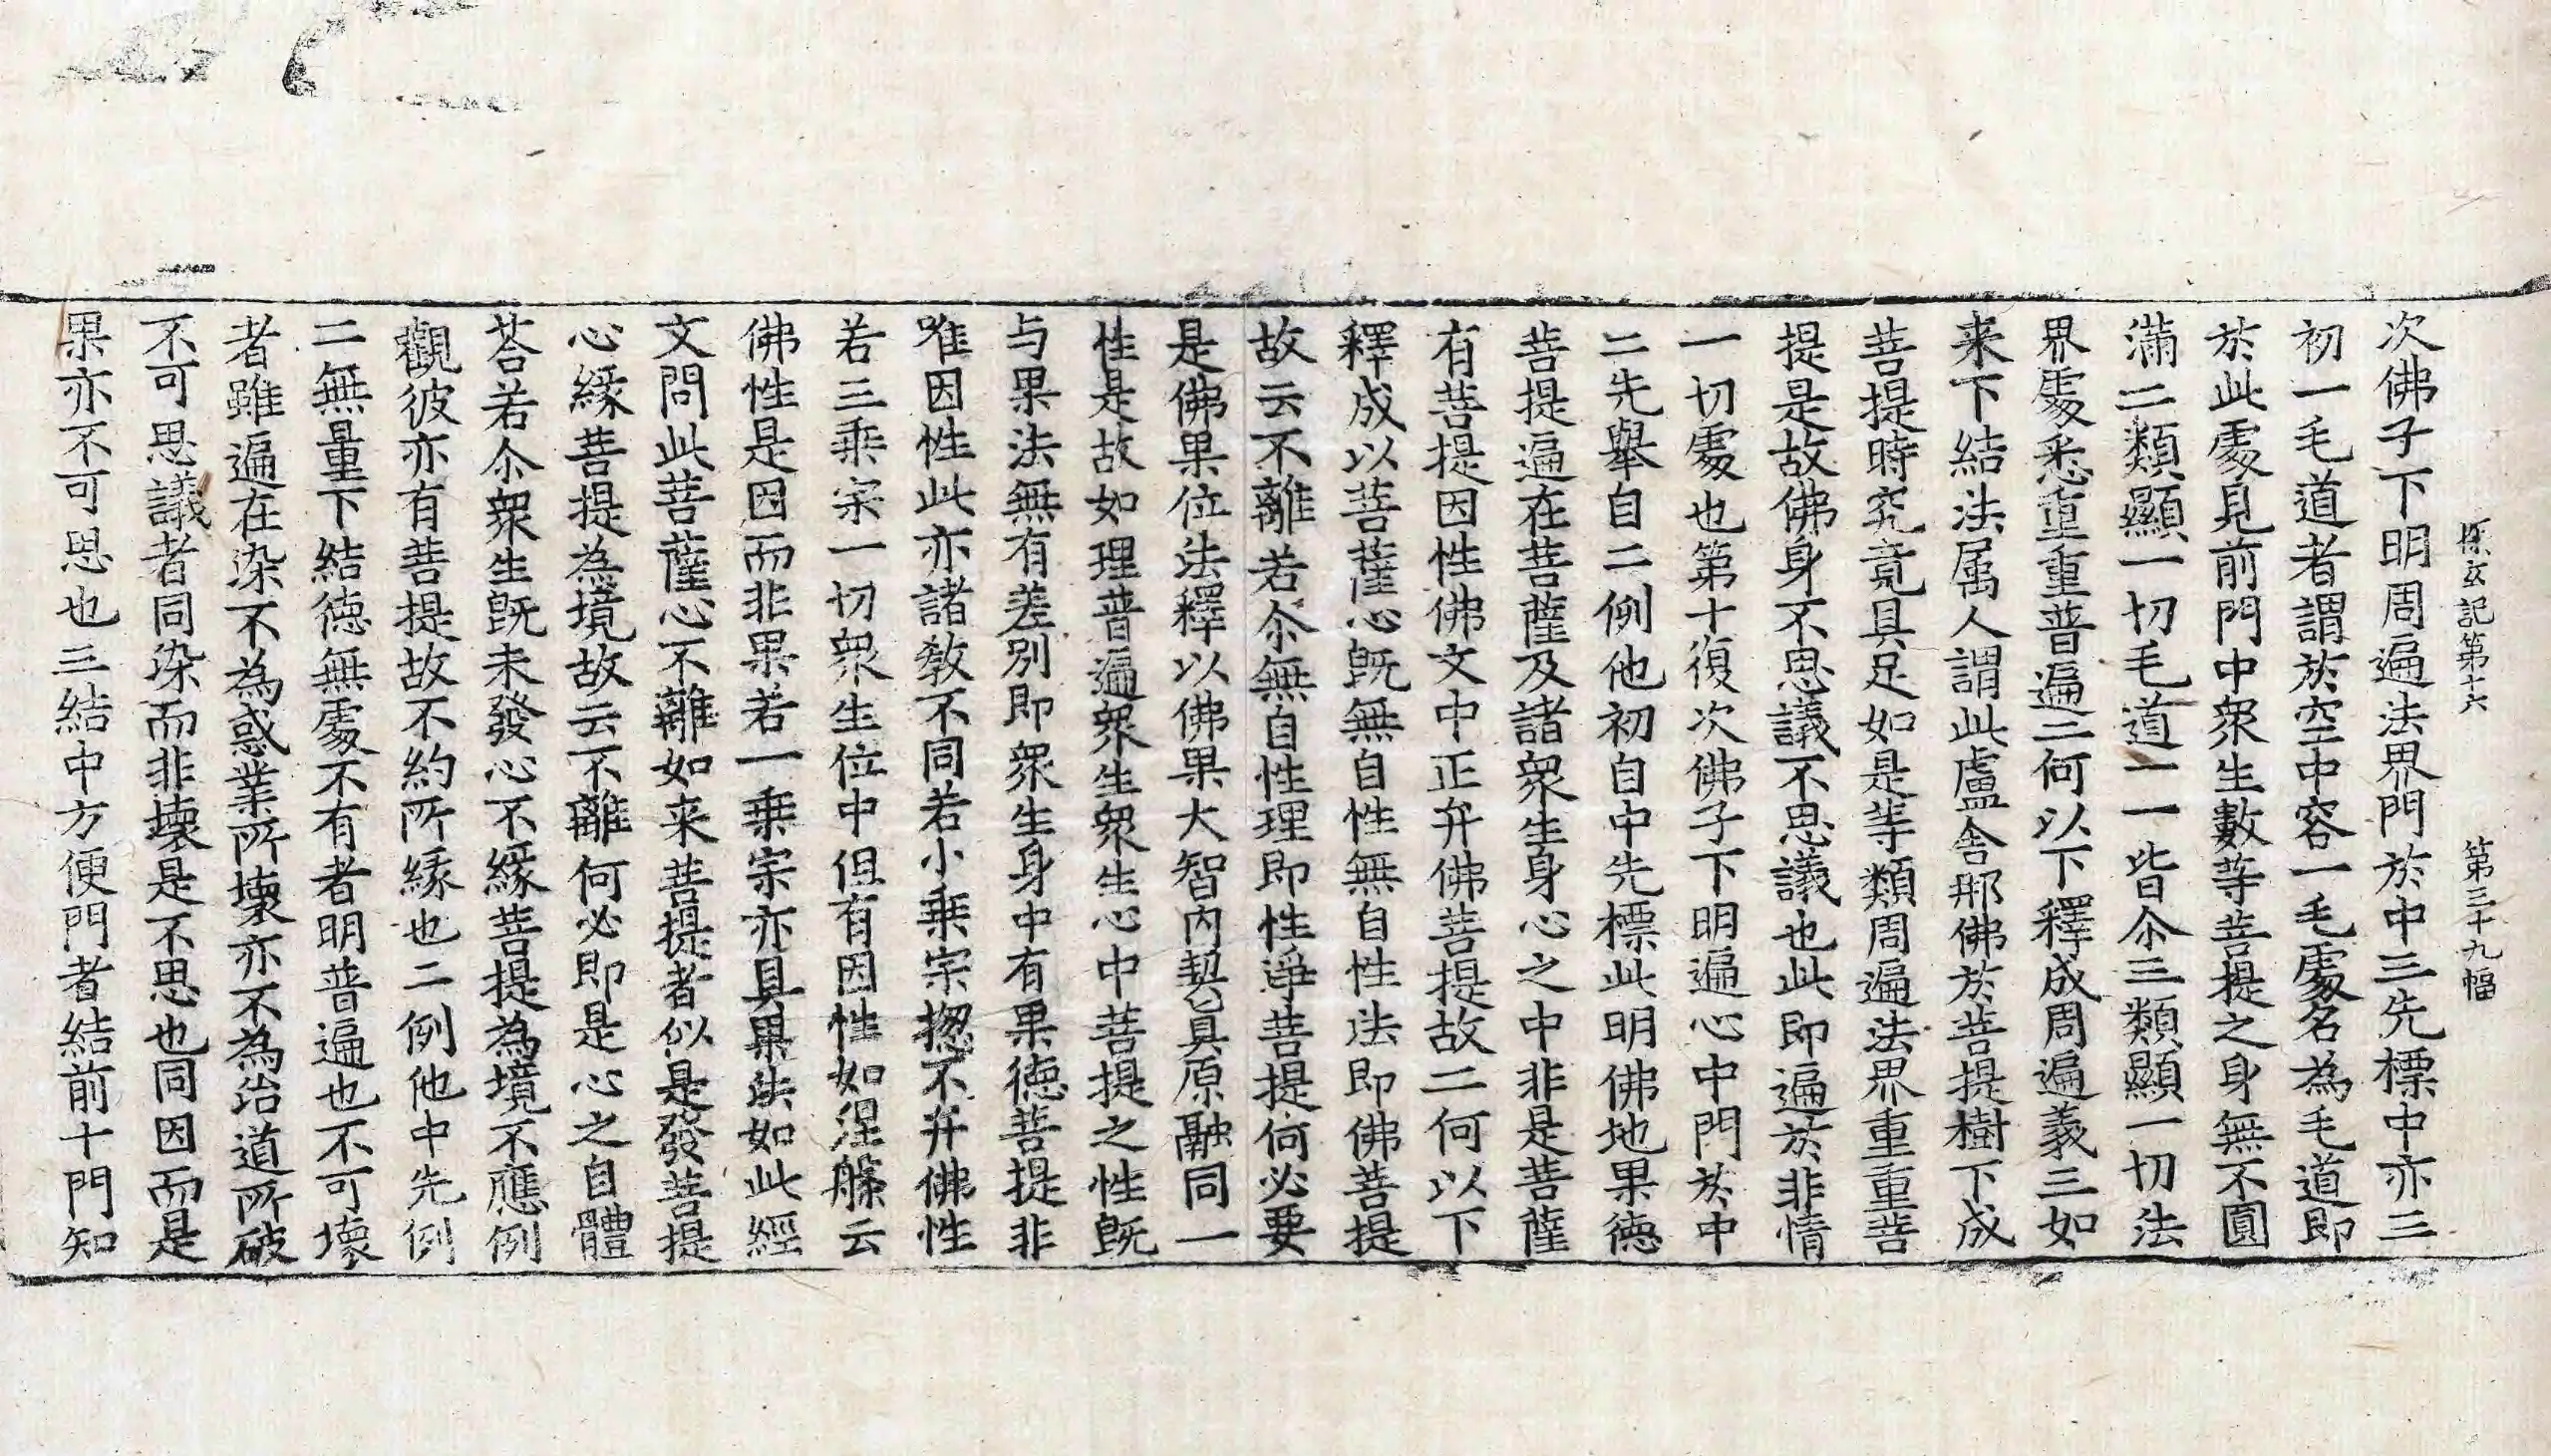 探玄記第十六　第三十九幅
次佛子下明周遍法界門於中三先標中亦三
初一毛道者謂於空中容一毛處名為毛道即
於此處見前門中衆生數等菩提之身無不圓
滿二類顯一切毛道一一皆尒三類顯一切法
界處悉重重普遍三何以下釋成周遍義三如
来下結法属人謂此盧舍那佛於菩提樹下成
菩提時究竟具足如是等類周遍法界重重菩
提是故佛身不思議不思議也此即遍於非情
一切處也第十復次佛子下明遍心中門於中
二先舉自二例他初自中先標此明佛地果德
菩提遍在菩薩及諸衆生身心之中非是菩薩
有菩提因性佛文中正弁佛菩提故二何以下
釋成以菩薩心既無自性無自性法即佛菩提
故云不離若尒無自性理即性淨菩提何必要
是佛果位法釋以佛果大智內契真原融同一
性是故如理普遍衆生衆生心中菩提之性既
与果法無有差別即衆生身中有果德菩提非
唯因性此亦諸教不同若小乗宗揔不弁佛性
若三乗宗一切衆生位中但有因性如涅槃云
佛性是因而非果若一乗宗亦具果法如此經
文問此菩薩心不離如来菩提者似是發菩提
心縁菩提為境故云不離何必即是心之自體
荅若尒衆生既未發心不縁菩提為境不應例
觀彼亦有菩提故不約所縁也二例他中先例
二無量下結德無處不有者明普遍也不可壞
者雖遍在染不為惑業所壞亦不為治道所破
不可思議者同染而非壞是不思也同因而是
果亦不可思也三結中方便門者結前十門知